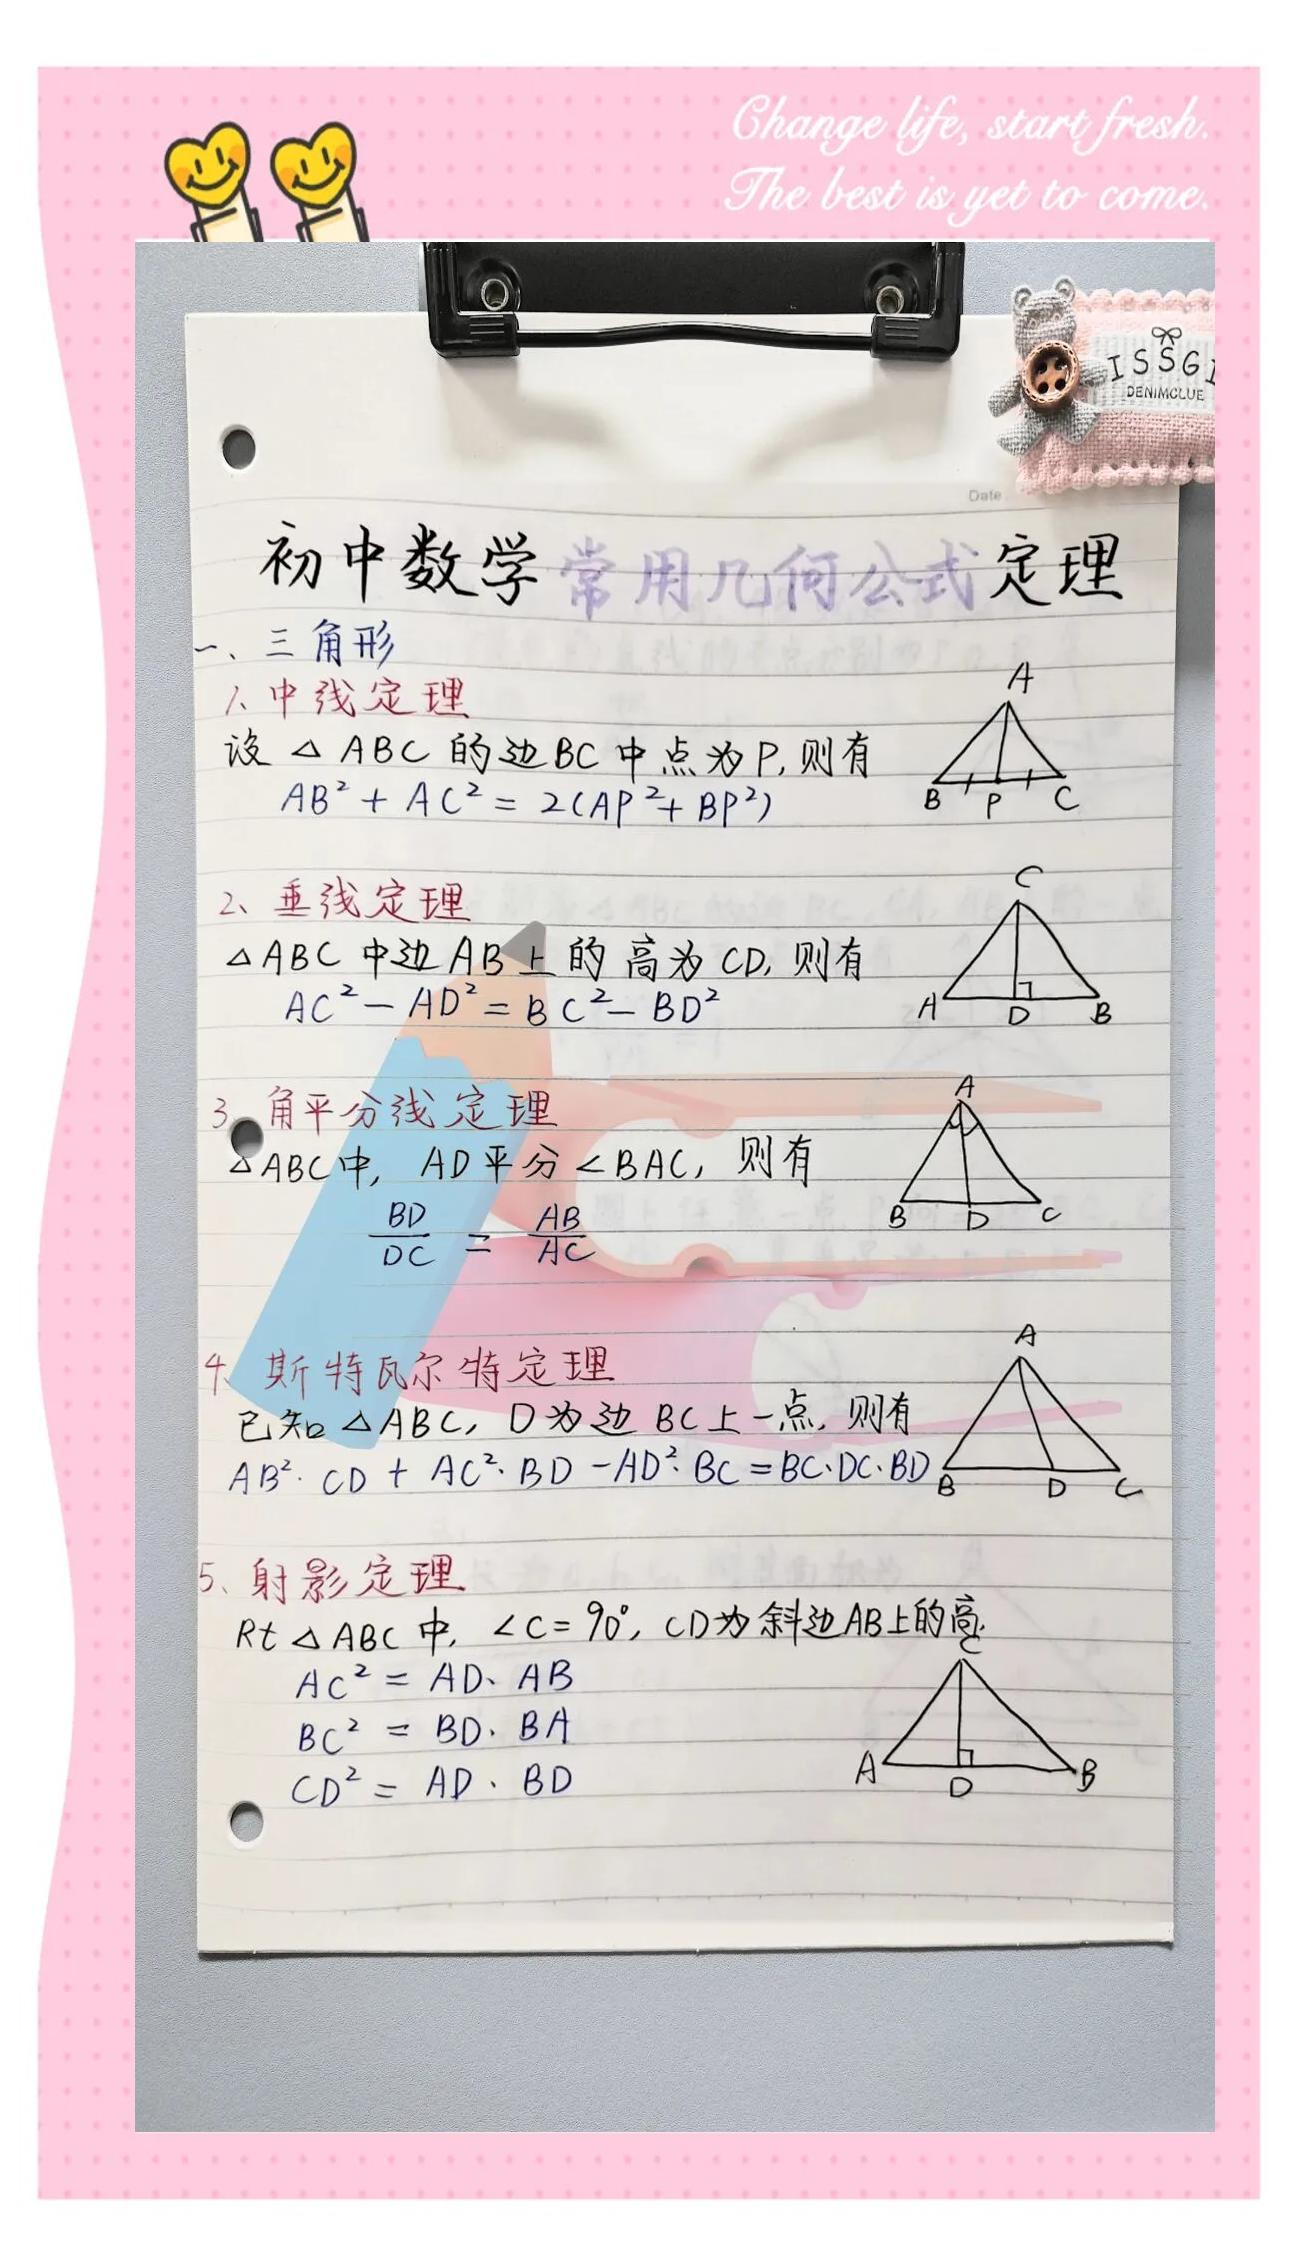 Change life, start fresh.
The best is yet to come.
ISSGI
DENIMCLUE
Date
初中数学常用几何公式定理
一、三角形
1、中线定理
设△ABC的边BC中点为P,则有
AB²+AC²=2(AP²+BP²)
A
B P C
2、垂线定理
△ABC中边AB上的高为CD,则有
AC²-AD²=BC²-BD²
C
A D B
3、角平分线定理
△ABC中, AD平分∠BAC, 则有
BD/DC = AB/AC
A
B D C
4、斯特瓦尔特定理
已知△ABC, D为边BC上一点, 则有
AB²·CD+AC²·BD-AD²·BC=BC·DC·BD
A
B D C
5、射影定理
Rt△ABC中, ∠C=90°, CD为斜边AB上的高.
AC²=AD·AB
BC²=BD·BA
CD²=AD·BD
C
A D B